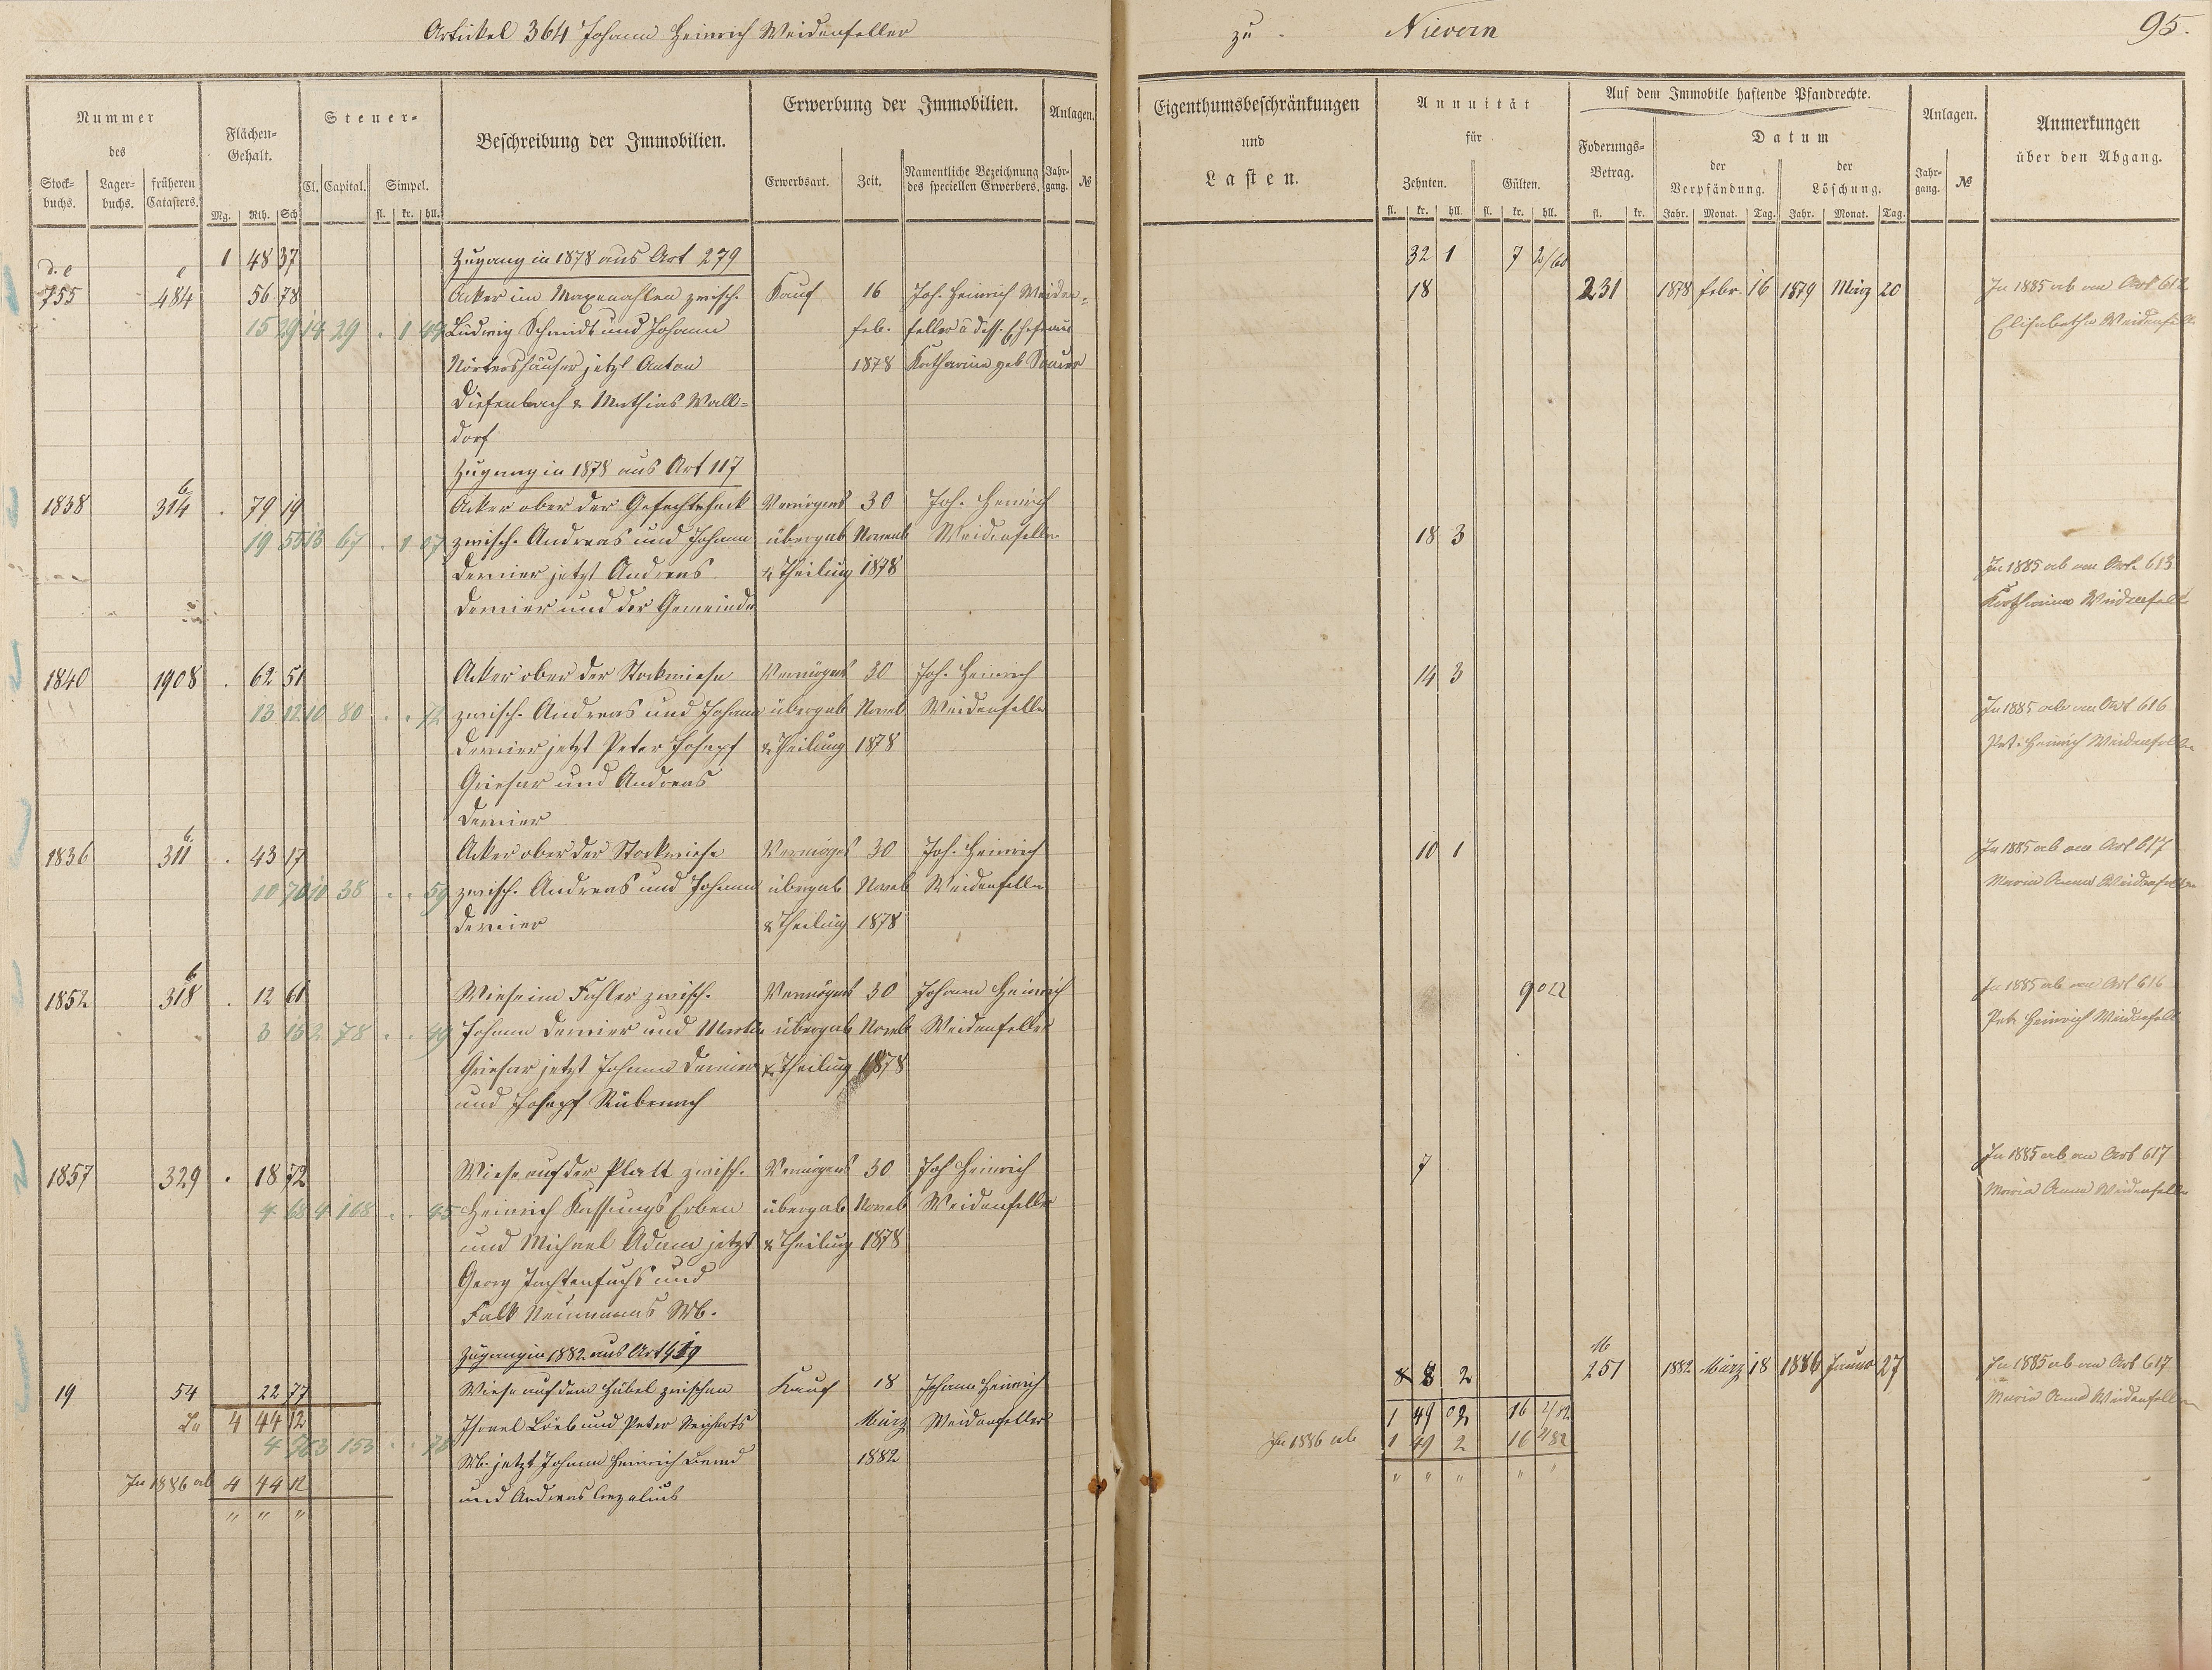 Artikel 364 Johann Heinrich Weidenfeller zu Nievern 95.
Nummer des
Stockbuchs. Lagerbuchs. früheren Catasters.
Flächen-Gehalt.
Mg. Rth. Sch
Steuer-
Cl. Capital. Simpel.
fl. kr. hll.
Beschreibung der Immobilien.
Erwerbung der Immobilien.
Erwerbsart. Zeit. Namentliche Bezeichnung des speciellen Erwerbers.
Anlagen.
Jahrgang. №
Eigenthumsbeschränkungen
und
Lasten.
Annuität
für
Zehnten. Gülten.
fl. kr. hll. fl. kr. hll.
Auf dem Immobile haftende Pfandrechte.
Foderungs-Betrag.
fl. kr.
Datum
der Verpfändung. der Löschung.
Jahr. Monat. Tag. Jahr. Monat. Tag.
Anlagen.
Jahrgang. №
Anmerkungen
über den Abgang.
1 48 37 Zugang in 1878 aus Art 279 32 1 7 2/60
755 484 56 78 Acker im zwisch. Kauf 16 Joh. Heinrich Weiden= 18 231 1878 Febr. 16 1879 März 20 In 1885 ab an Art 612
15 29 14 29 . 1 Ludwig Schmidt und Johann Feb. feller u dess. Ehefrau Elisabetha Weidenfell
Nörtershäuser jetzt Anton 1878 Katharina geb Sauer
Diefenbach & Mathias Wall=
dorf
Zugang in 1878 aus Art 117
1838 314 . 79 19 Acker ober der Vermögens 30 Joh. Heinrich
19 55 13 67 . 1 07 zwisch. Andreas und Johann übergab Novemb Weidenfeller 18 3
Dernier jetzt Andreas & Theilung 1878 In 1885 ab an Art. 613
Dernier und der Gemeinde Katharina Weidenfell
1840 1908 . 62 51 Acker ober der Stockwiese Vermögens 30 Joh. Heinrich 14 3
13 12 10 80 . . 72 zwisch. Andreas und Johann übergab Noveb Weidenfeller In 1885 ab an Art 616
Dernier jetzt Peter Josepf & Theilung 1878 Pet. Heinrich Weidenfeller
Griesar und Andreas
Dernier
1836 311 . 43 17 Acker ober der Stockwiese Vermöges 30 Joh. Heinrich 10 1 In 1885 ab an Art 617
10 70 10 38 . . 59 zwisch. Andreas und Johann übergab Noveb Weidenfeller Maria Anna Weidenfeller
Dernier & Theilung 1878
1852 318 . 12 61 Wiese im Fahler zwisch. Vermögens 30 Johann Heinrich 9 In 1885 ab an Art 616
3 15 2 78 . . 49 Johann Dernier und übergab Noveb Weidenfeller Pet. Heinrich Weidenfell
Griesar jetzt Johann Dernier & Theilung 1878
und Josepf Rübenach
1857 329 . 18 72 Wiese auf der Platt zwisch. Vermögens 30 Joh Heinrich 7 In 1885 ab an Art 617
4 68 4 168 . . 45 Heinrich Erben übergab Noveb Weidenfeller Maria Anna Weidenfeller
und Michael Adam jetzt & Theilung 1878
Georg und
Falk Neumanns Wb.
Zugang in 1882 aus Art
19 54 22 77 Wiese auf dem Hübel zwischen Kauf 18 Johann Heinrich 8 2 M 251 1882 März 18 1886 Januar 27 In 1885 ab an Art 617
La 4 44 12 Israel Löeb und Peter März Weidenfeller 1 49 2 16 2/82 Maria Anna Weidenfeller
153 Wb. jetzt Johann Heinrich 1882 In 1886 ab 1 49 2 16 2/82
In 1886 ab 4 44 12 und Andreas " " " " "
" " "